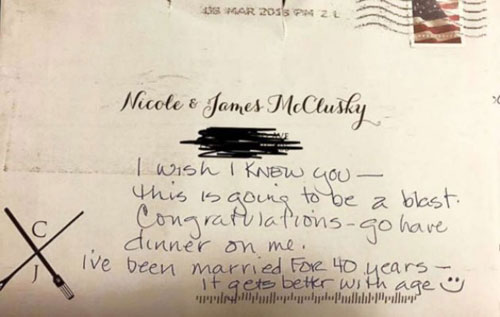 MAR 2018 PM 2 L
Nicole & James McClusky
I wish I knew you —
this is going to be a blast.
Congratulations - go have
dinner on me.
I've been married for 40 years —
it gets better with age
C
J